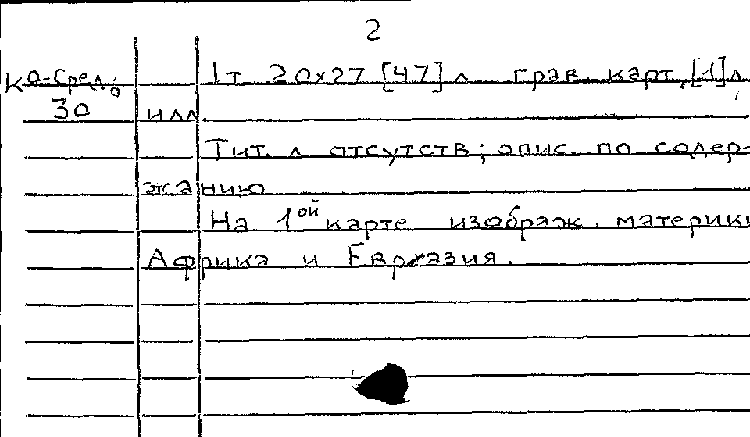 2
Ко-Сред.; 1т 20×27 [47] л грав. карт, [1] л
30 илл
Тит. л отсутств; опис. по содер-
жанию
На 1ой карте изображ. материки
Африка и Евразия.